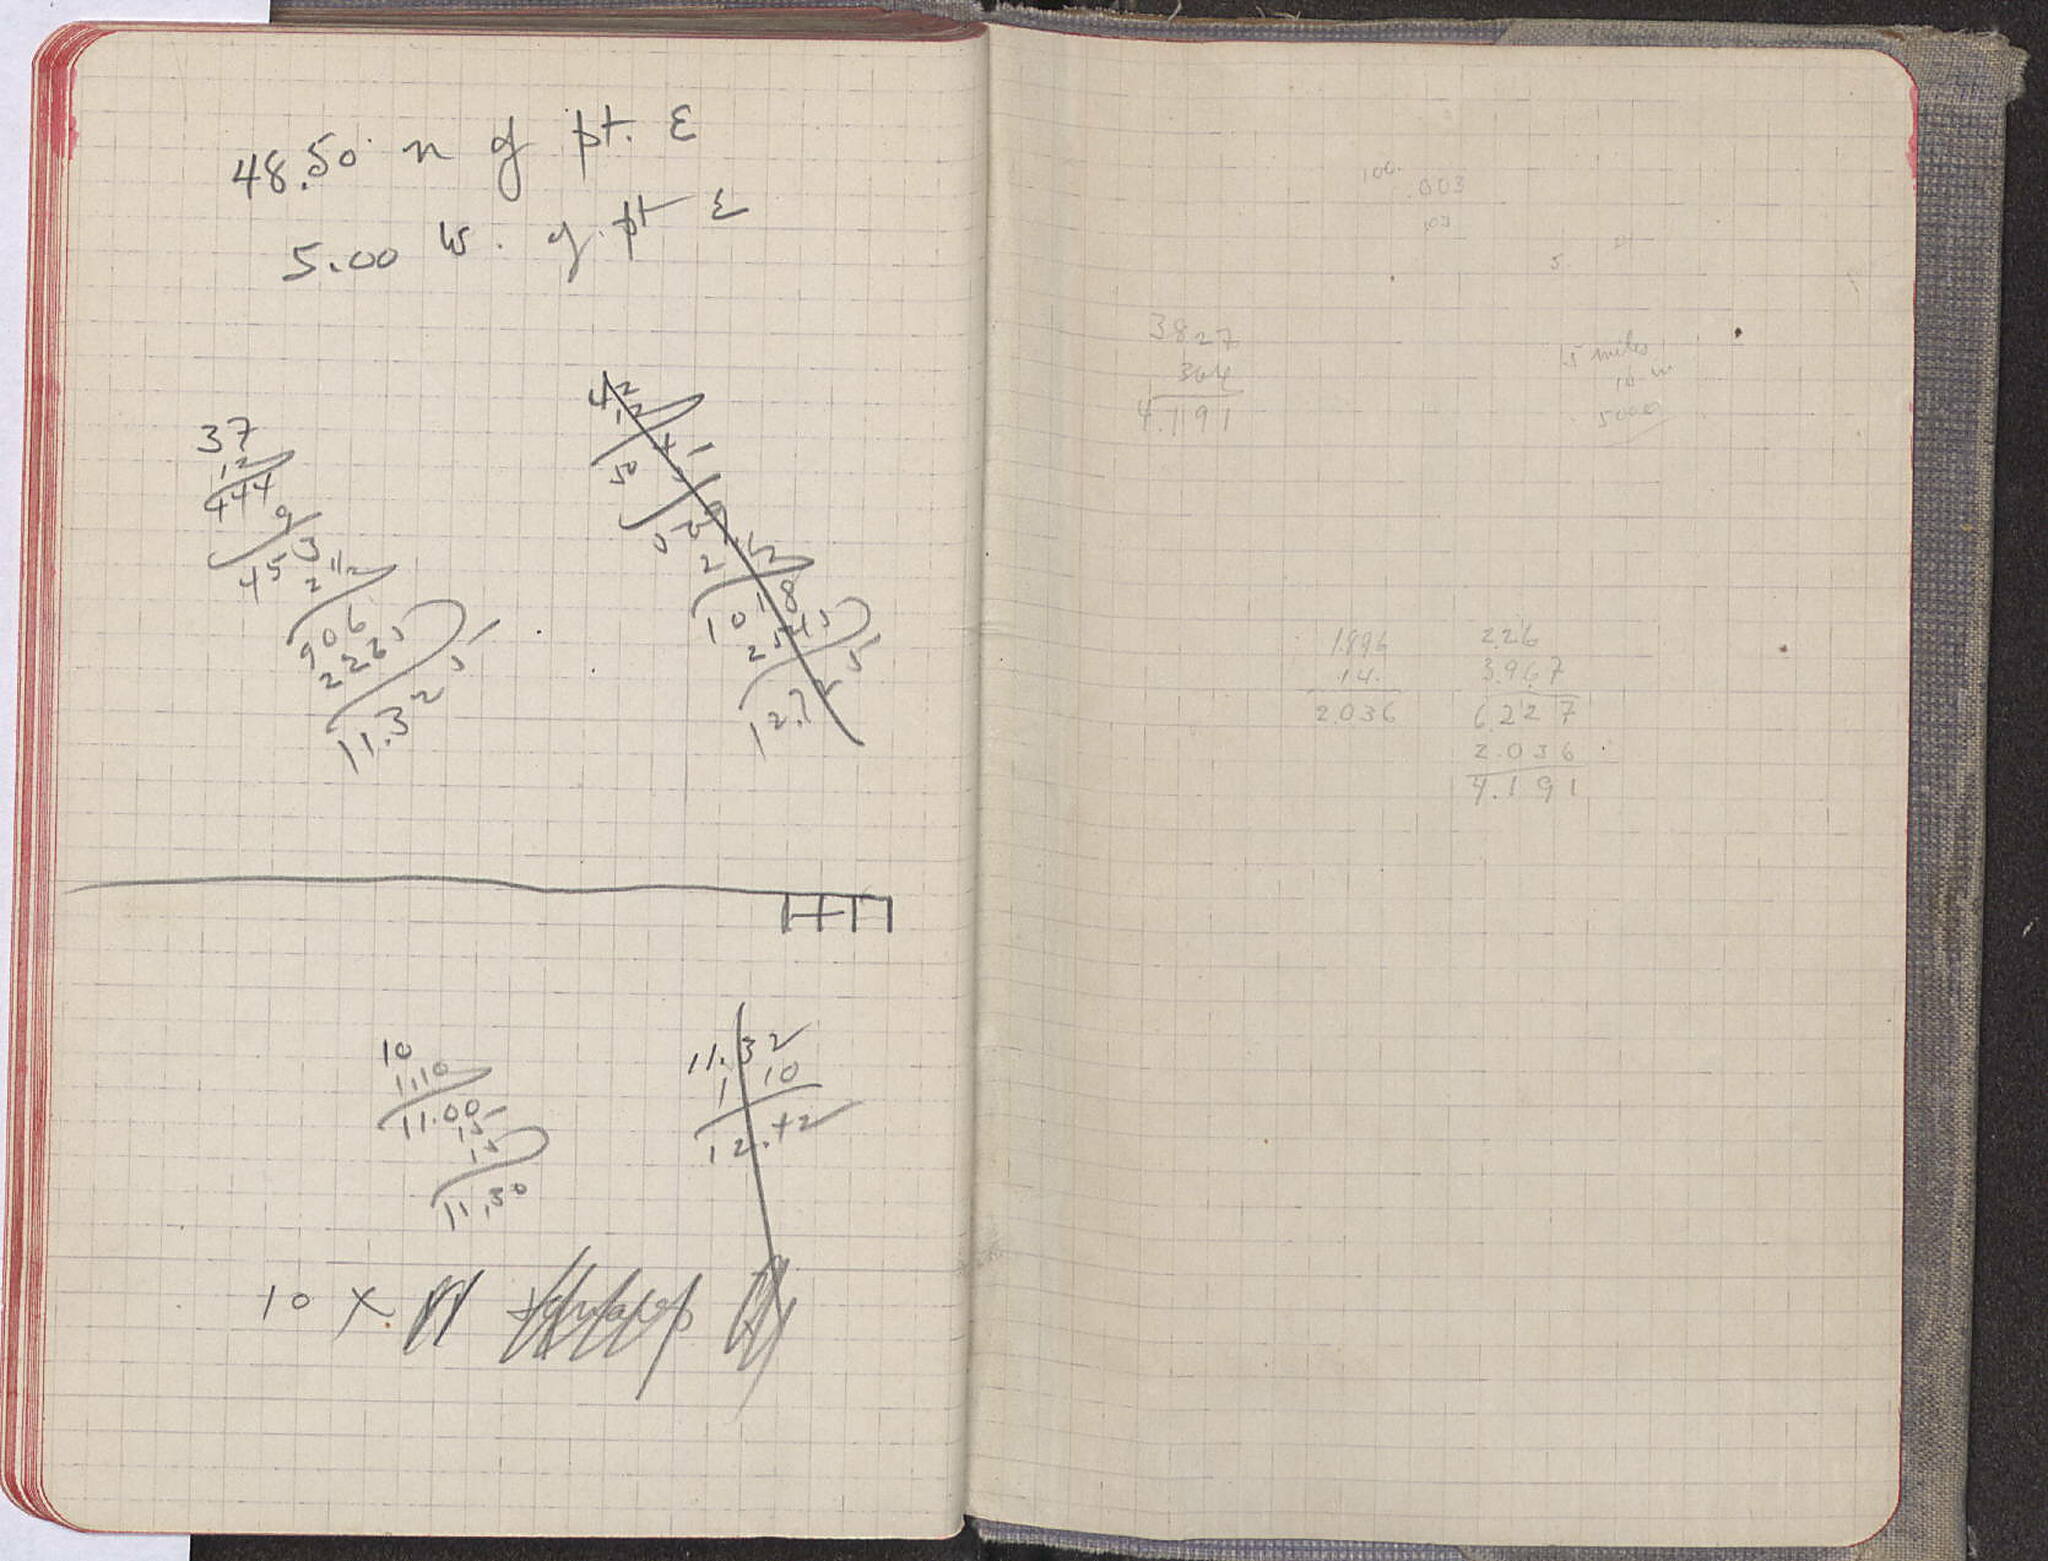 48.50 n of pt. E
5.00 W. of pt E
37
12
444
9
453
2 1/2
906
2265
11.325
42
12
50
12
1018
2545
12.7
10
1.10
11.00
15
15
11.30
11.32
1 10
12.42
10 X
100.
.003
.03
5
3827
364
4.191
5 miles
5000
1.896
14.
2.036
2.26
3.967
6.227
2.036
4.191